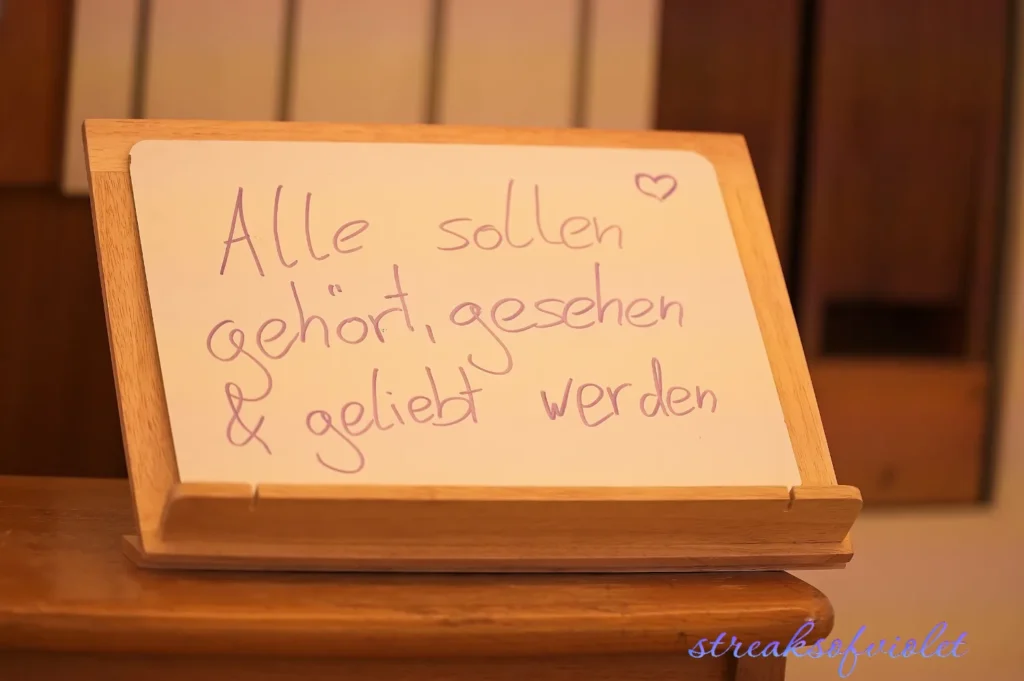 Alle sollen
gehört, gesehen
& geliebt werden
streaksofviolet